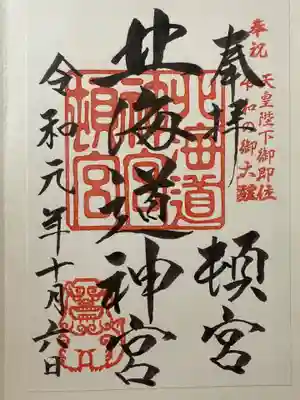 奉祝
天皇陛下御即位
令和の御大禮
奉拝
頓宮
北海道神宮
令和元年十月六日
北海道
神宮
頓宮